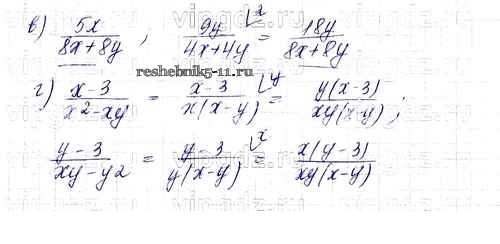 в) 5x/(8x+8y) , 9y/(4x+4y) \2 = 18y/(8x+8y)
reshebnik5-11.ru
г) (x-3)/(x²-xy) = (x-3)/(x(x-y)) \y = y(x-3)/(xy(x-y)) ;
(y-3)/(xy-y2) = (y-3)/(y(x-y)) \x = x(y-3)/(xy(x-y))